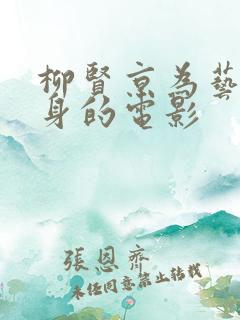 柳賢京為藝
身的電影
張恩齊
未经同意禁止转载